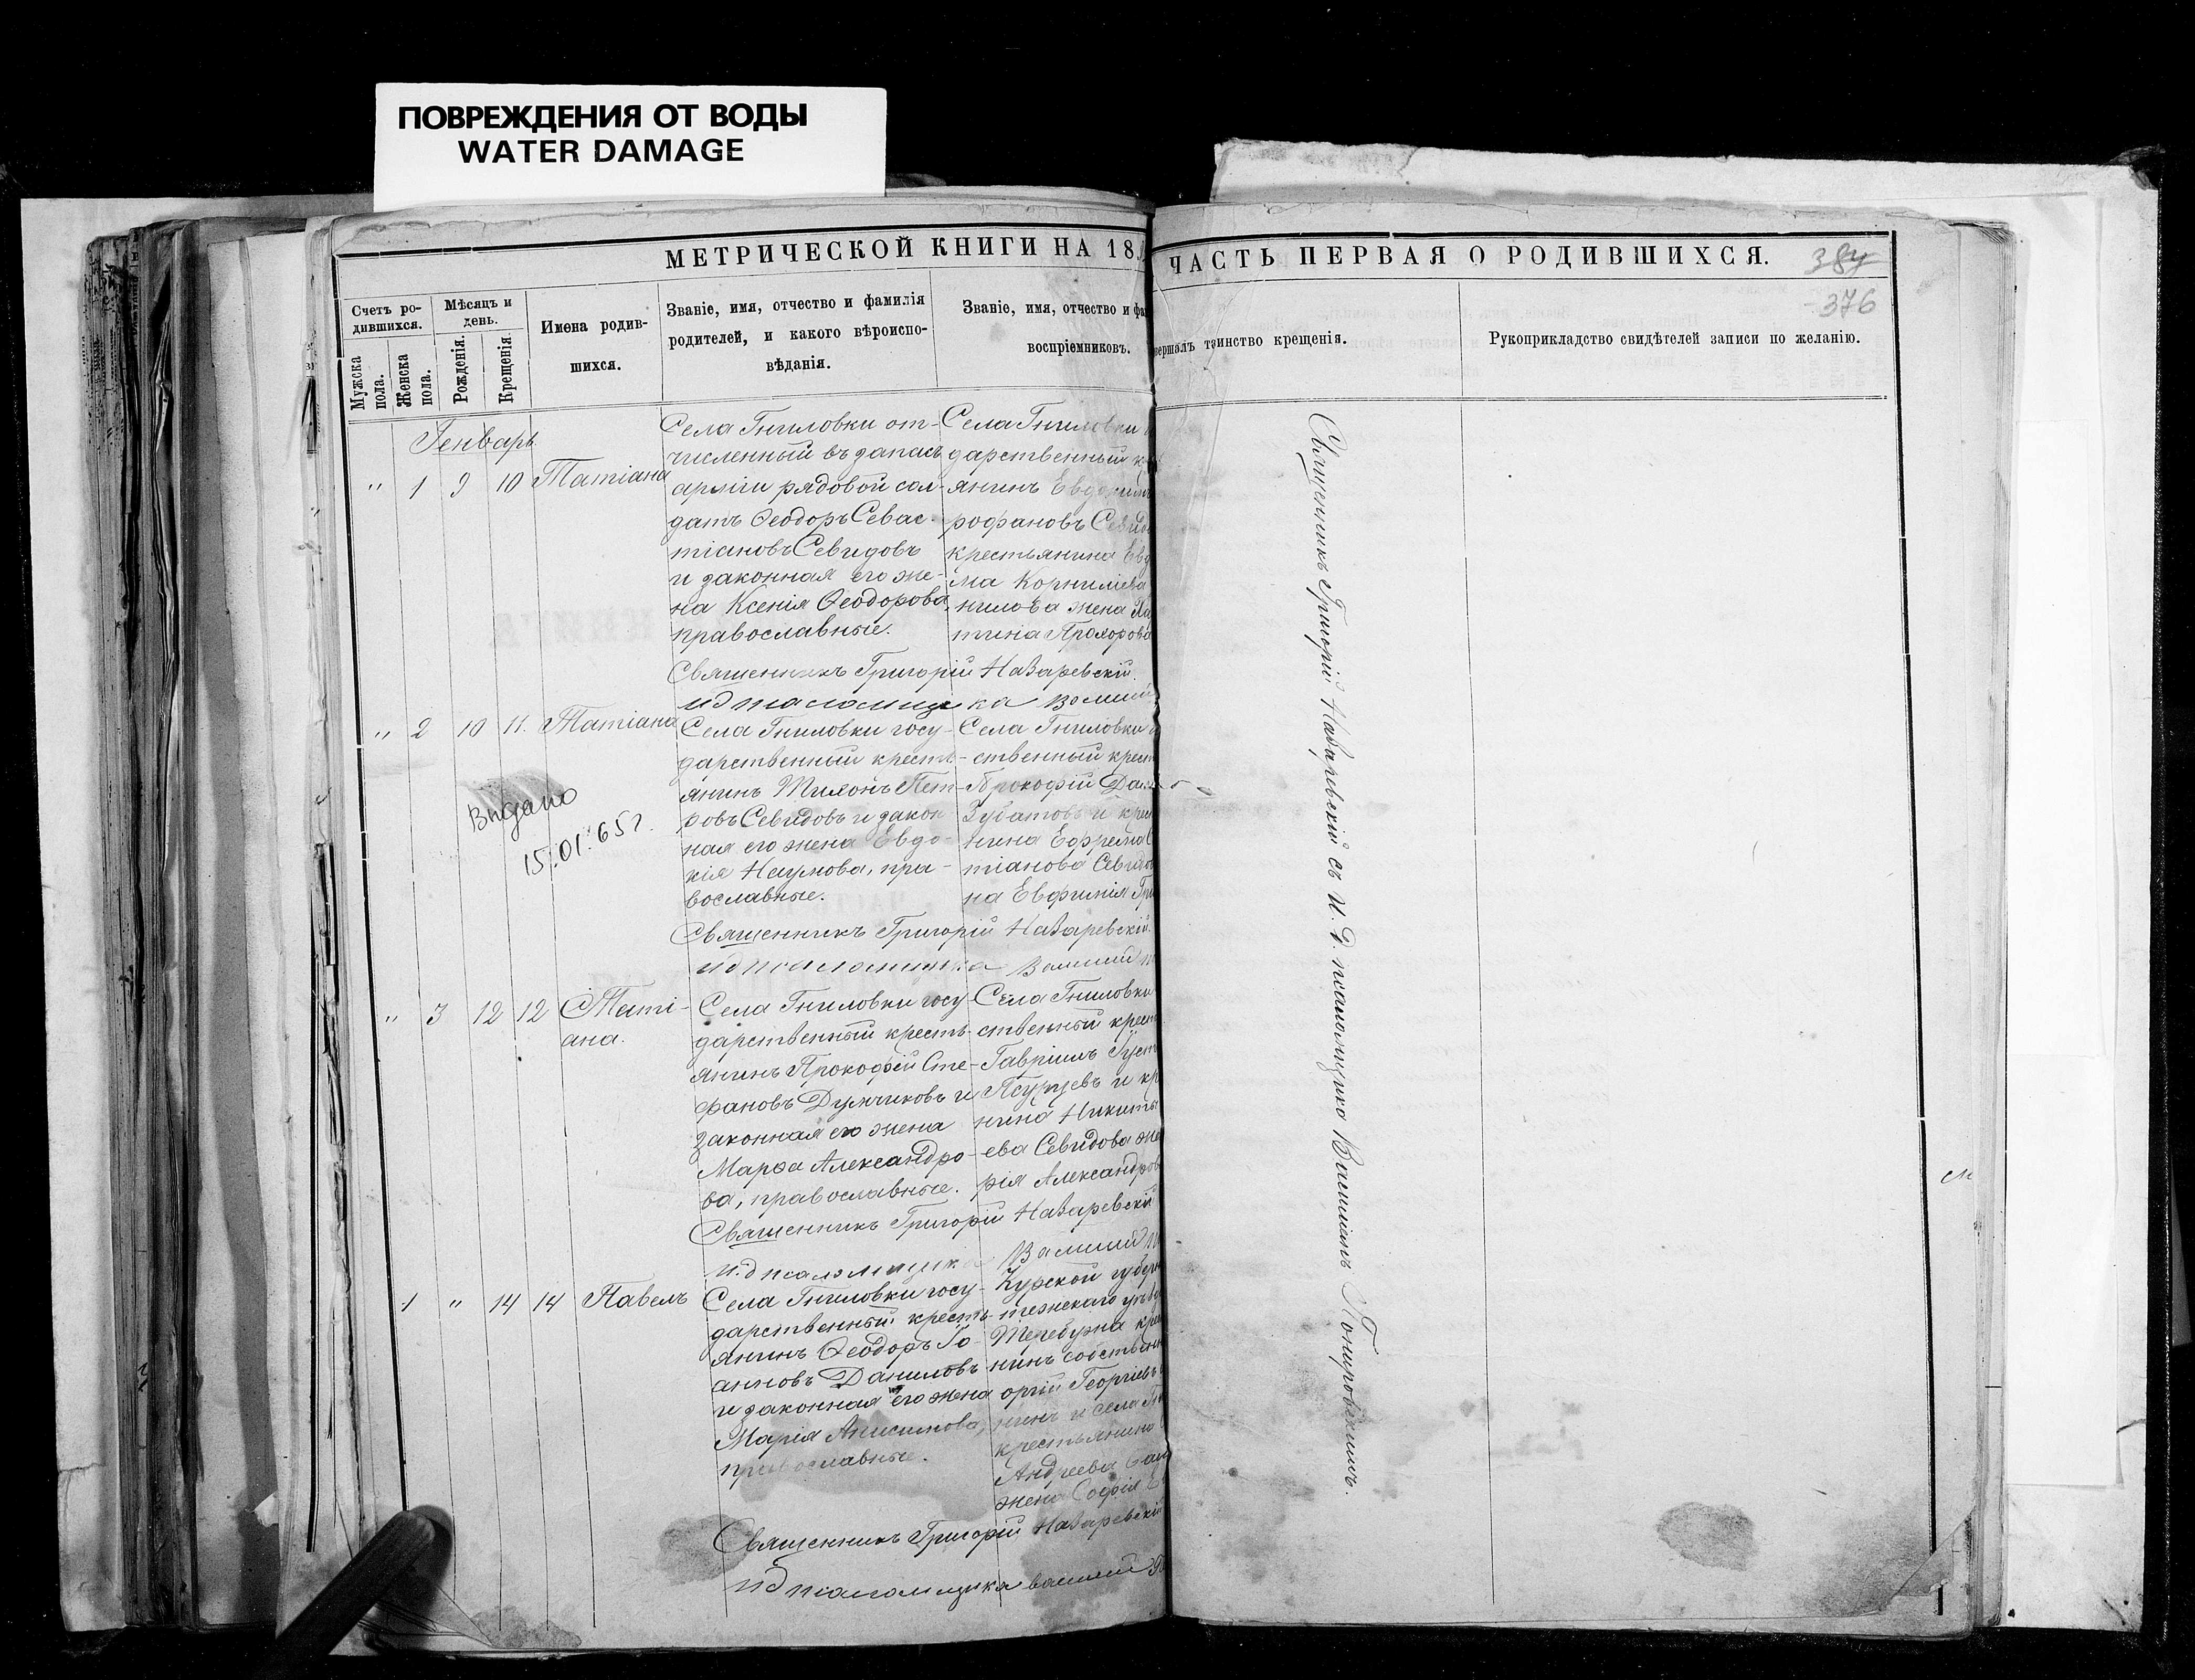 ПОВРЕЖДЕНИЯ ОТ ВОДЫ
WATER DAMAGE
МЕТРИЧЕСКОЙ КНИГИ НА 18
ЧАСТЬ ПЕРВАЯ О РОДИВШИХСЯ.
384
376
Счетъ ро-
дившихся.
Мужска
пола.
Женска
пола.
Мѣсяцъ и
день.
Рожденія.
Крещенія.
Имена родив-
шихся.
Званіе, имя, отчество и фамилія
родителей, и какого вѣроиспо-
вѣданія.
Званіе, имя, отчество и фа
воспріемниковъ.
вершалъ таинство крещенія.
Рукоприкладство свидѣтелей записи по желанію.
Генварь
" 1 9 10 Татіана
Села Гниловки от-
численный въ запасъ
арміи рядовой сол-
датъ Ѳеодоръ Севас-
тіановъ Севидовъ
и законная его же-
на Ксенія Ѳеодорова,
православные.
Села Гниловки
дарственный к
янинъ Евдоким
рофановъ Севидо
крестьянина Евд
ма Корниліева
нилова жена
тина Прохорова
Священникъ Григорій Назаревскій.
ид псаломщика
" 2 10 11. Татіана
Села Гниловки госу-
дарственный кресть-
янинъ Тихонъ Пет-
ровъ Севидовъ и закон
ная его жена Евдо-
кія Наумова, пра-
вославные.
Села Гниловки
ственный крест
Прокофій Дан
Зубатовъ и крес
нина Ефрема С
тіанова Севидо
на Евфимія Гри
Выдано
15.01.65г.
Священникъ Григорій Назаревскій.
ид псаломщика
" 3 12 12 Тати-
ана.
Села Гниловки госу-
дарственный кресть-
янинъ Прокофій Сте-
фановъ Думчиковъ и
законная его жена
Марѳа Александро-
ва, православные.
Села Гниловки
ственный крест
Гавріилъ
и кр
нина Никиты
ева Севидова же
рія Александров
Священникъ Григорій Назаревскій
и.д псаломщик
1 " 14 14 Павелъ
Села Гниловки госу-
дарственный кресть-
янинъ Ѳеодоръ Іо-
анновъ Даниловъ
и законная его жена
Марія Анисимова,
православные.
Курской губер
Теребужа крес
нинъ собственн
оргій Георгіевъ
нинъ и села Гн
крестьянина
Андреева
жена Софія
Священникъ Григорій Назаревскій
ид псаломщика
Священникъ Григорій Назаревскій съ И. Д. псаломщика Василіемъ
1